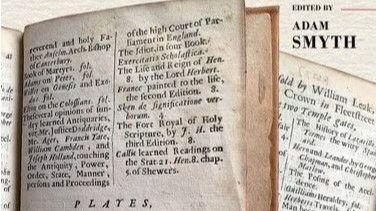 EDITED BY
ADAM
SMYTH
reverend and holy Fa-
ther Anselm Arch-Bishop
of Canterbury.
Book of Martyrs. fol.
Adams on Peter, fol.
Willet on Genesis and Exo-
dus fol.
on the Colossians. fol.
The several opinions of sun-
dry learned Antiquaries,
ver. Mr. Justice Dodridge,
Mr. Ager, Francis Tate,
William Camden, and
Joseph Holland, touching
the Antiquity, Power,
Order, State, Manner,
persons and Proceedings
of the high Court of Par-
liament in England.
The Idiot, in four Book.
Exercitatio Scholastica.
The Life and Reign of Hen.
8. by the Lord Herbert.
France painted to the life,
the second Edition. 8.
Sken de Significatione ver-
borum. 4
The Fort Royal of Holy
Scripture, by J. H. the
third Edition. 8.
Callis learned Readings on
the Stat. 21. Hen. 8. chap.
5. of Shewers.
PLAYES,
Sold by William Leak,
Crown in Fleetstreet
two Temple gates,
The History of
Hero and Leander by George
Chapman, and Christopher
Marlow.
The
dence.
Guilliams Heraldry, fol.
Herberts Travels, fol.